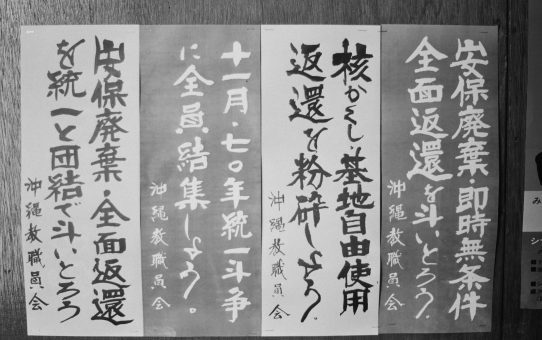 安保廃棄 即時無条件
全面返還を斗いとろう.
沖縄教職員会
核かくし・基地自由使用
返還を粉砕しよう.
沖縄教職員会
十一月・七〇年統一斗争
に全員結集しよう。
沖縄教職員会
安保廃棄・全面返還
を統一と団結で斗いとろう
沖縄教職員会
み